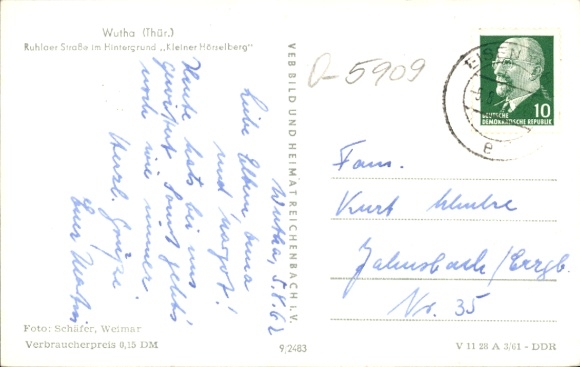 Wutha (Thür.)
Ruhlaer Straße im Hintergrund „Kleiner Hörselberg"
Wutha, 5.8.62
Liebe Eltern
und
Heute hat's bei uns
gewittert sonst geht's
noch wie immer
Herzl. Grüße
Euer
Foto: Schäfer, Weimar
Verbraucherpreis 0,15 DM
VEB BILD UND HEIMAT REICHENBACH i. V.
9/2483
0-5909
EISEN
e
10
DEUTSCHE
DEMOKRATISCHE REPUBLIK
Fam.
Kurt
Jahnsbach/Erzgb.
Nr. 35
V 11 28 A 3/61 - DDR